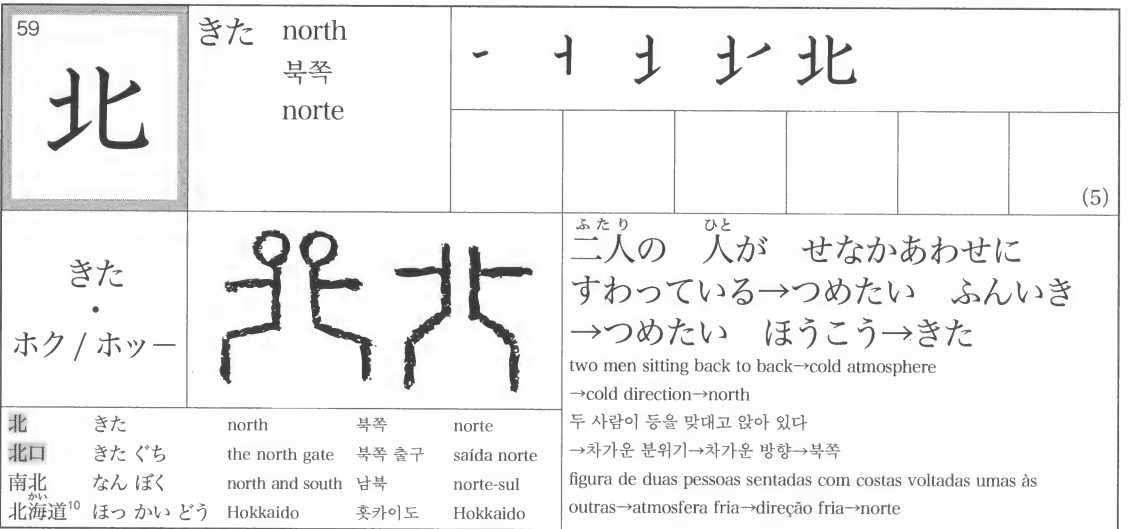 59
北
きた north
북쪽
norte
北
(5)
きた
・
ホク / ホッー
ふたり ひと
二人の 人が せなかあわせに
すわっている→つめたい ふんいき
→つめたい ほうこう→きた
two men sitting back to back→cold atmosphere
→cold direction→north
두 사람이 등을 맞대고 앉아 있다
→차가운 분위기→차가운 방향→북쪽
figura de duas pessoas sentadas com costas voltadas umas às
outras→atmosfera fria→direção fria→norte
北 きた north 북쪽 norte
北口 きた ぐち the north gate 북쪽 출구 saída norte
南北 なん ぼく north and south 남북 norte-sul
かい
北海道10 ほっ かい どう Hokkaido 홋카이도 Hokkaido